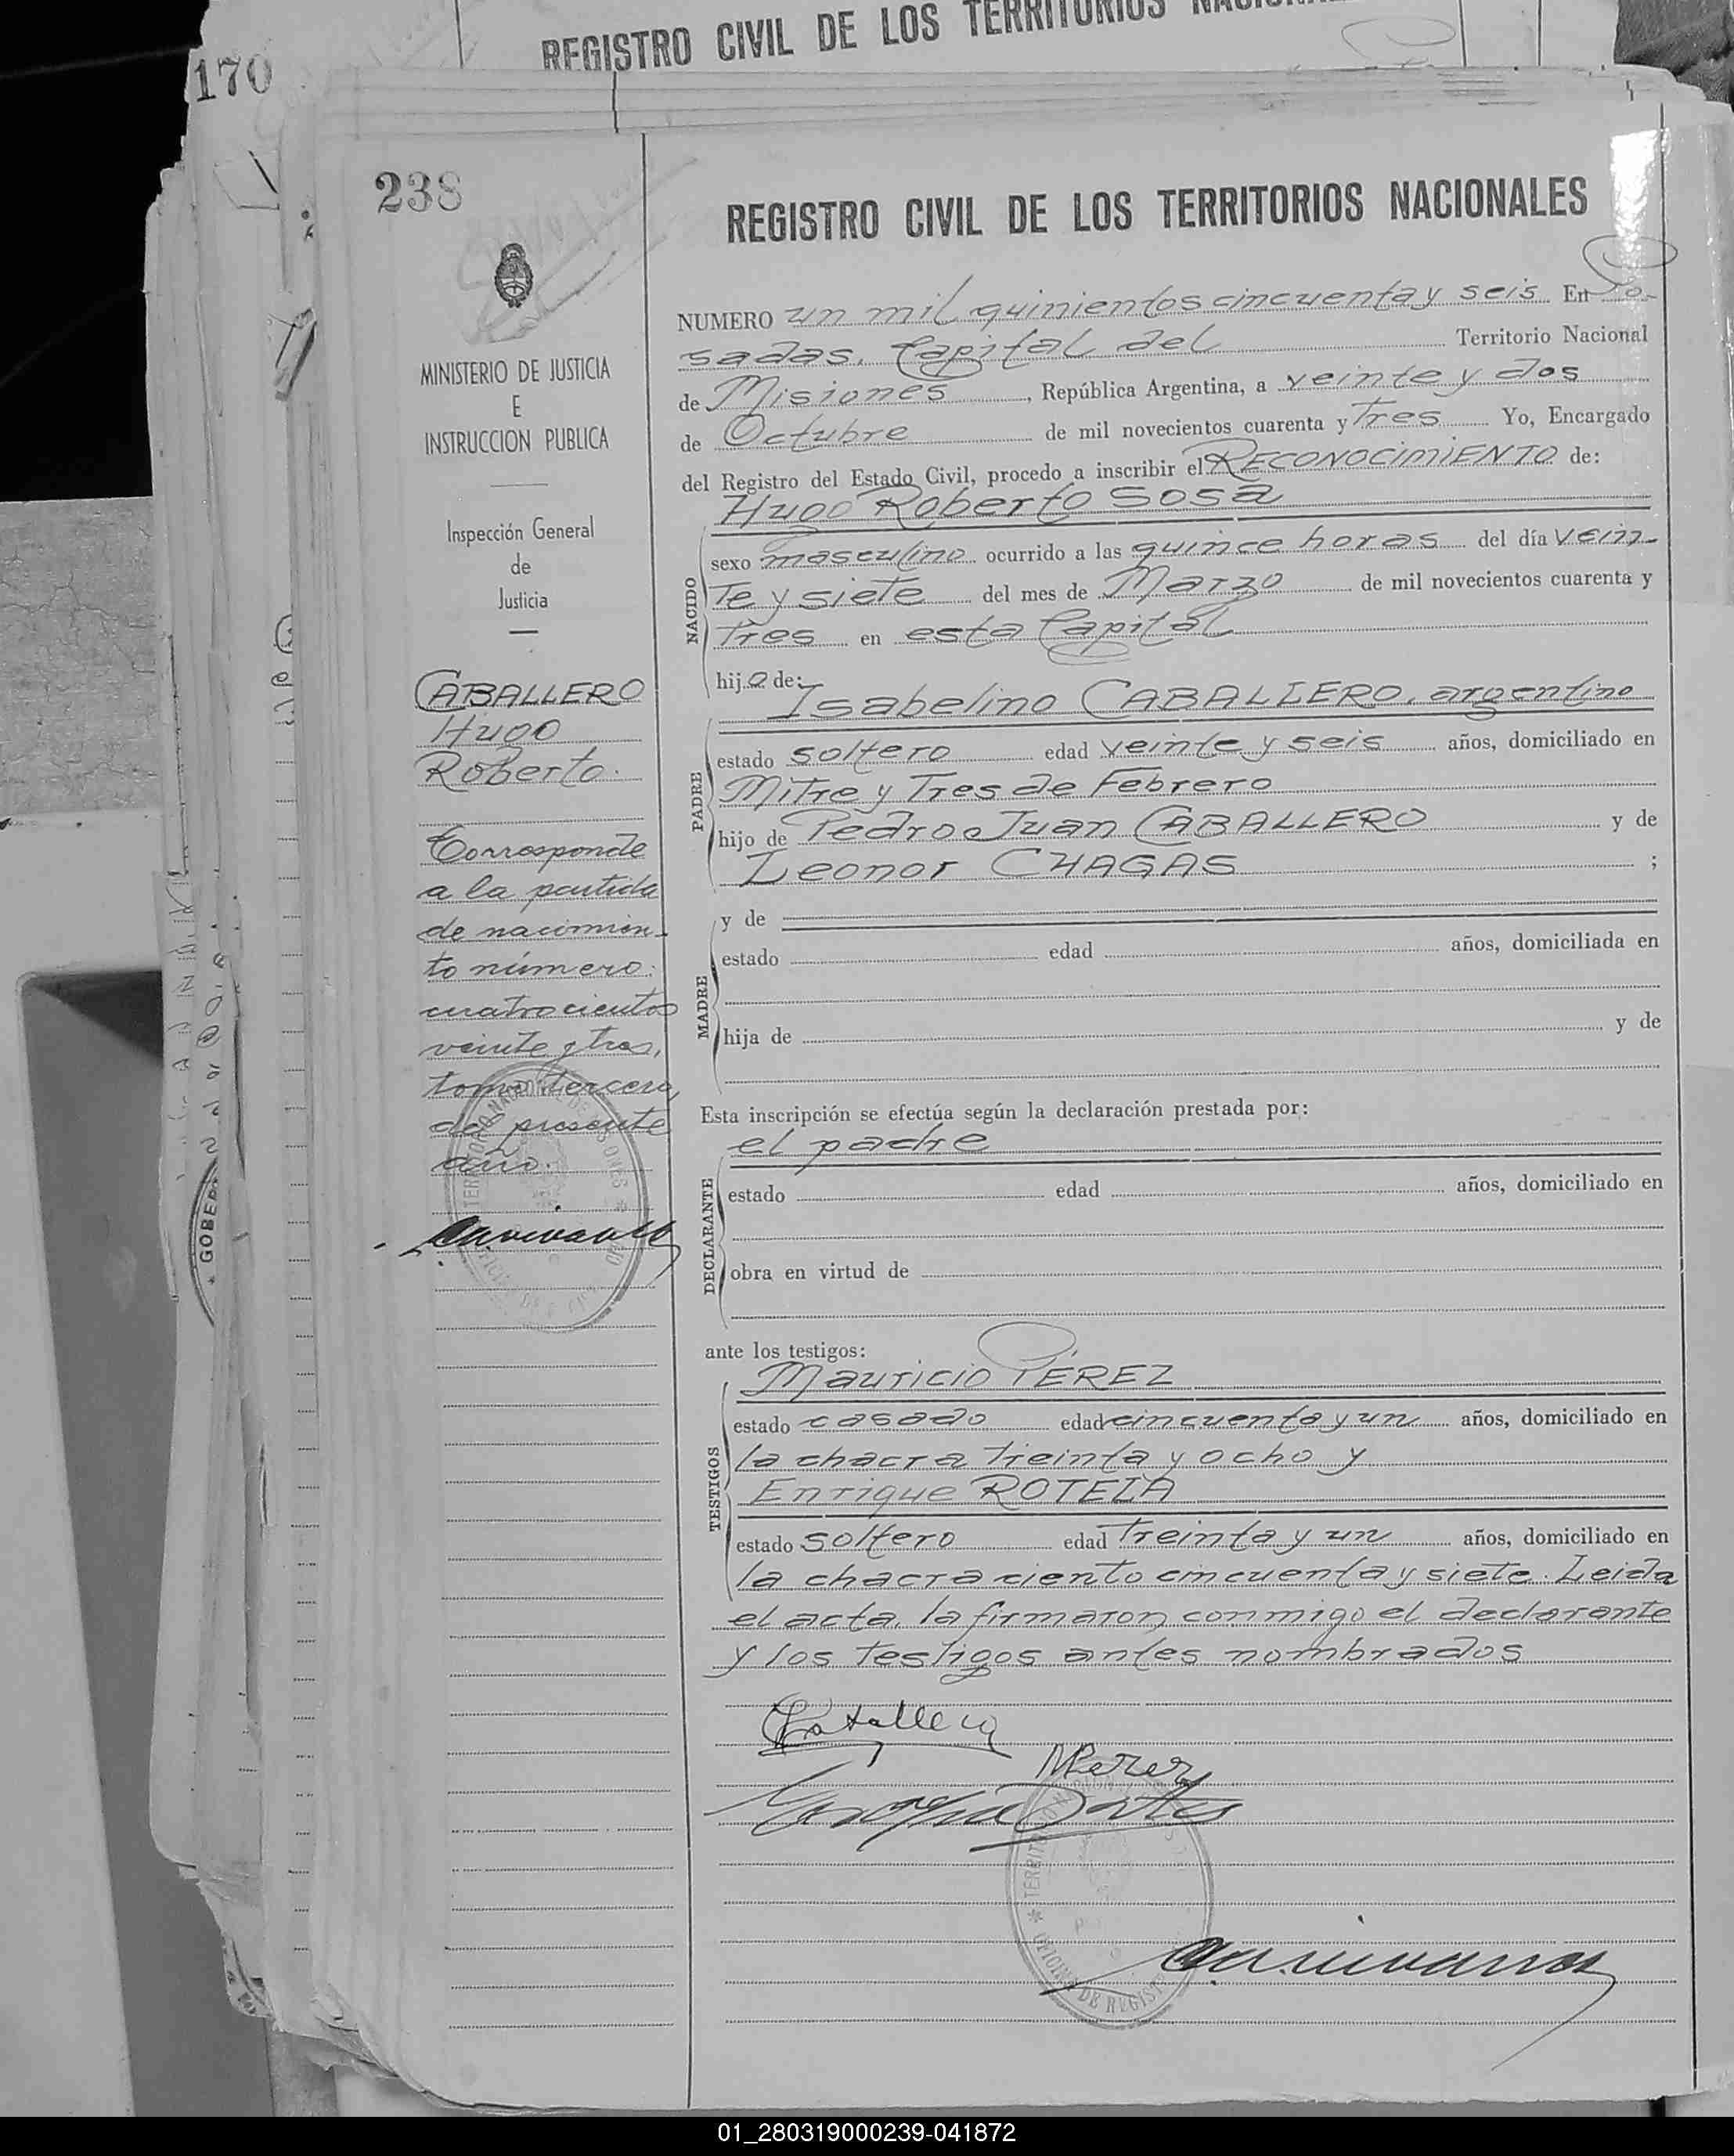 REGISTRO CIVIL DE LOS TERRITORIOS
170
238
REGISTRO CIVIL DE LOS TERRITORIOS NACIONALES
MINISTERIO DE JUSTICIA
E
INSTRUCCION PUBLICA
Inspección General
de
Justicia
CABALLERO
Hugo
Roberto.
Corresponde
a la partida
de nacimien-
to número:
cuatrocientos
veinte y tres,
tomo tercero,
del presente
año.
NUMERO un mil quinientos cincuenta y seis En Po-
sadas, Capital del Territorio Nacional
de Misiones, República Argentina, a veinte y dos
de Octubre de mil novecientos cuarenta y Tres Yo, Encargado
del Registro del Estado Civil, procedo a inscribir el RECONOCIMIENTO de:
Hugo Roberto Sosa
NACIDO
sexo masculino ocurrido a las quince horas del día vein-
te y siete del mes de Marzo de mil novecientos cuarenta y
Tres en esta Capital
hijo de:
Isabelino CABALLERO, argentino
PADRE
estado soltero edad veinte y seis años, domiciliado en
Mitre y Tres de Febrero
hijo de Pedro Juan CABALLERO y de
Leonor CHAGAS ;
MADRE
y de
estado edad años, domiciliada en
hija de y de
Esta inscripción se efectúa según la declaración prestada por:
el padre
DECLARANTE
estado edad años, domiciliado en
obra en virtud de
ante los testigos:
Mauricio PÉREZ
TESTIGOS
estado casado edad cincuenta y un años, domiciliado en
la chacra treinta y ocho y
Enrique ROTELA
estado soltero edad treinta y un años, domiciliado en
la chacra ciento cincuenta y siete. Leida
el acta, la firmaron conmigo el declarante
y los testigos antes nombrados
Caballero
MPerez
01_280319000239-041872